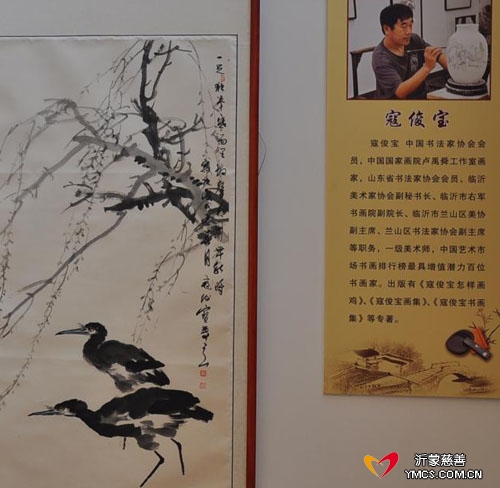 寇俊宝
寇俊宝 中国书法家协会会
员，中国国家画院卢禹舜工作室画
家，山东省书法家协会会员、临沂
美术家协会副秘书长、临沂市右军
书画院副院长、临沂市兰山区美协
副主席、兰山区书法家协会副主席
等职务，一级美术师，中国艺术市
场书画排行榜最具增值潜力百位
书画家。出版有《寇俊宝怎样画
鸡》、《寇俊宝画集》、《寇俊宝书画
集》等专著。
沂蒙慈善
YMCS.COM.CN